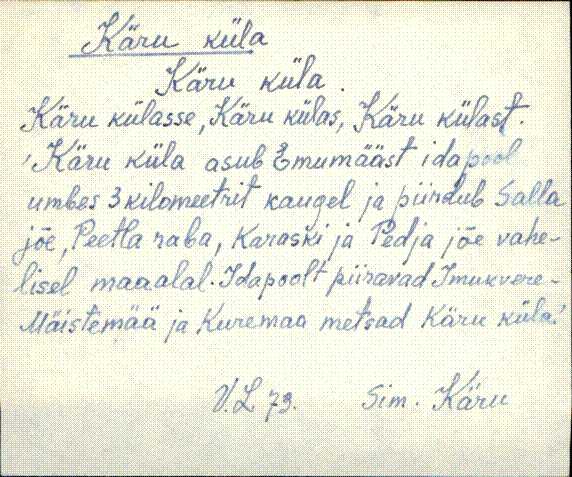 Käru küla
Käru küla.
Käru külasse, Käru külas, Käru külast.
'Käru küla asub Emumääst idapool
umbes 3 kilomeetrit kaugel ja piirdub Salla
jõe, Peetla raba, Karaski ja Pedja jõe vahe-
lisel maaalal. Idapoolt piiravad Imukvere-
Mäistemää ja Kuremaa metsad Käru küla.'
V.L 73. Sim. Käru